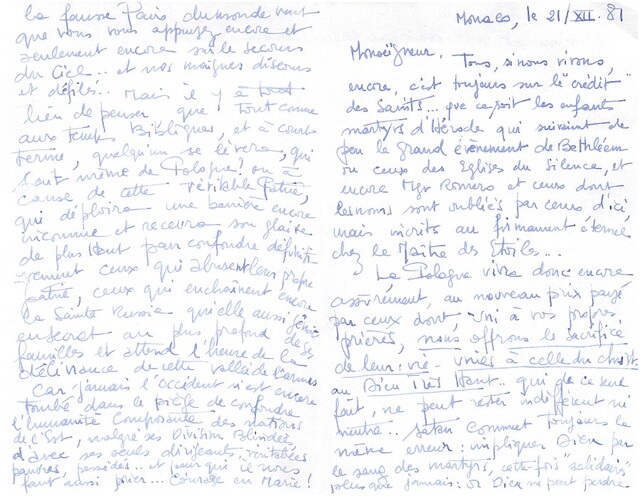 Monaco, le 21/XII.81
Monseigneur. Tous, si nous vivons,
encore, c'est toujours sur le "crédit"
des Saints... que ce soit les enfants
martyrs d'Hérode qui suivaient de
peu le grand évènement de Bethléem
ou ceux des Eglises du Silence, et
encore Mgr Romero et ceux dont
les noms sont oubliés par ceux d'ici,
mais inscrits au firmament éternel
chez le Maître des Etoiles...
La Pologne vivra donc encore
assurément, au nouveau prix payé
par ceux dont, uni à vos propres
prières, nous offrons le sacrifice
de leur vie - unies à celle du Christ
au Dieu Très Haut.. qui de ce seul
fait, ne peut rester indifférent ni
neutre... Satan commet toujours la
même erreur: impliquer Dieu par
le sang des martyrs, cette fois "solidaires"
plus que jamais: or Dieu ne peut perdre
la fausse Paix du monde veut
que vous vous appuyez encore et
seulement encore sur le secours
du Ciel... et nos maigres discours
et défilés... Mais il y a tout
lieu de penser que, tout comme
aux temps Bibliques, et à court
terme, quelqu'un se lèvera, qui
soit même de Pologne! ou à
cause de cette véritable Patrie,
qui déploira une bannière encore
inconnue et recevra son glaive
de plus Haut pour confondre définiti-
vement ceux qui abusent leur propre
patrie, ceux qui enchaînent encore
la Sainte Russia qu'elle aussi gémit
en secret au plus profond de ses
familles et attend l'heure de la
délivrance de cette vallée de larmes
Car jamais l'Occident n'est encore
tombé dans le piège de confondre
l'humanité composante des nations
de l'Est, malgré ses Divisions Blindées
d'avec ses seuls dirigeants, véritables
pauvres, possédés... et pour qui il nous
faut aussi prier... Courage en Marie!